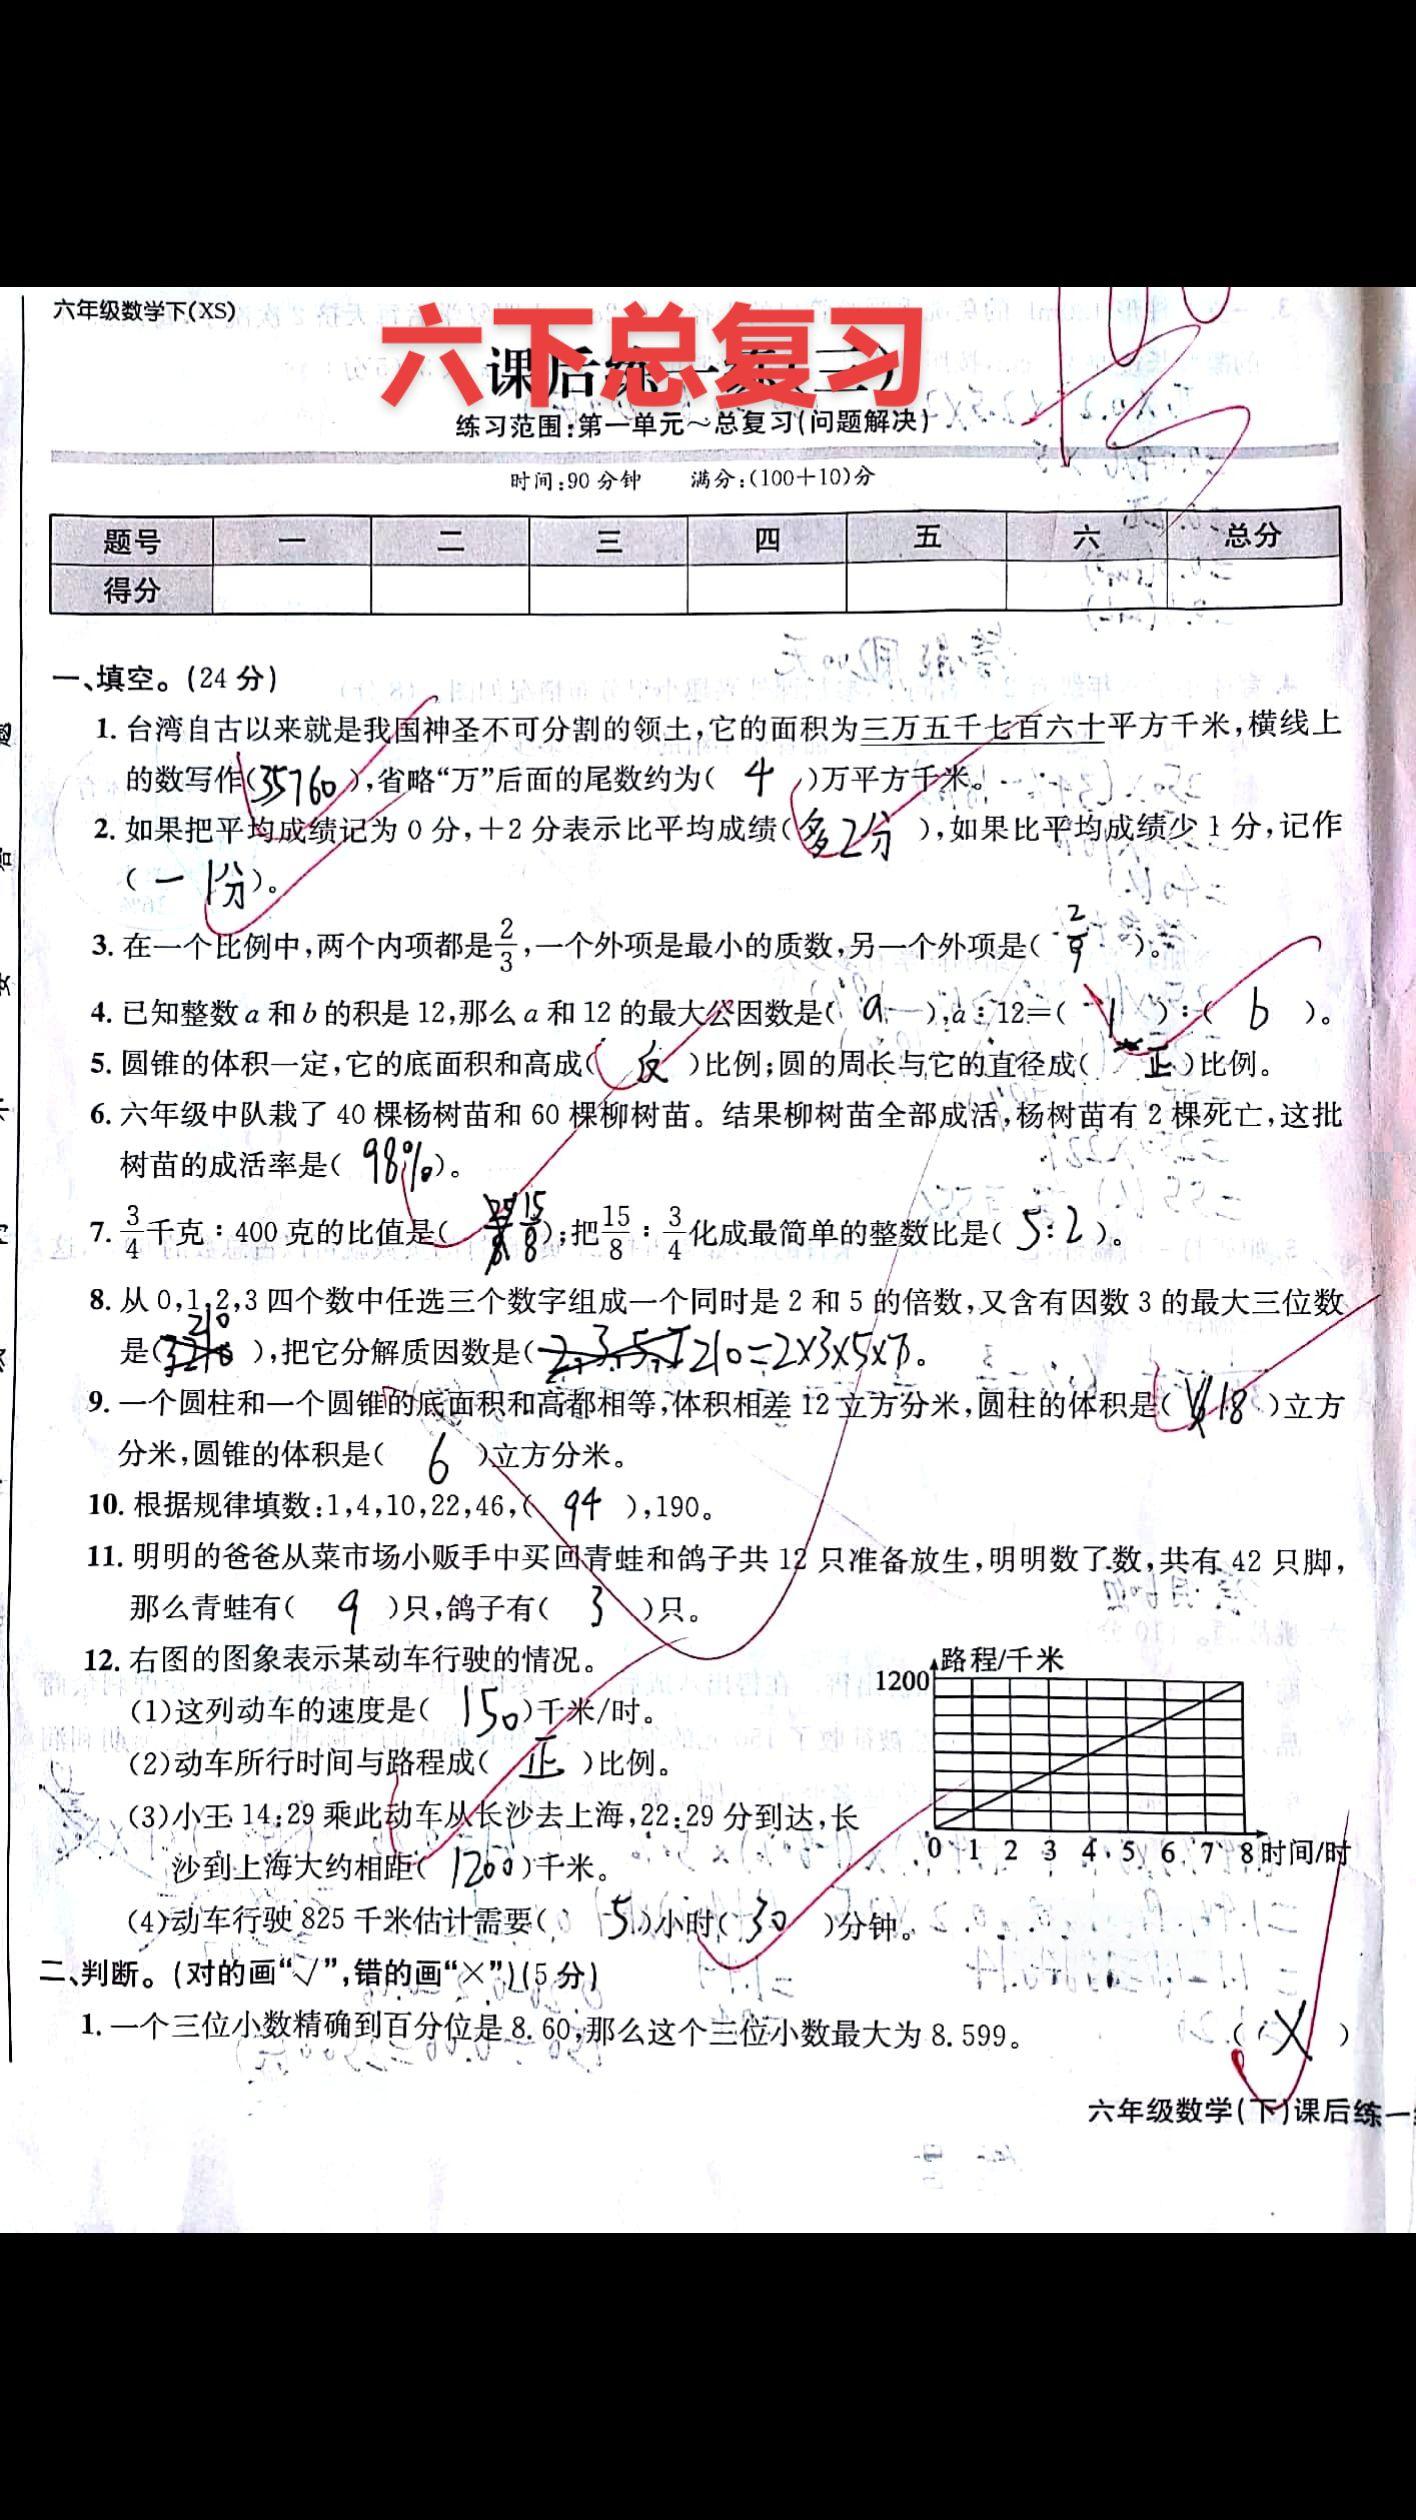 六年级数学下(XS)
六下总复习
课后练一练(三)
练习范围:第一单元～总复习(问题解决)
时间:90分钟 满分:(100+10)分
题号 一 二 三 四 五 六 总分
得分
一、填空。(24分)
1. 台湾自古以来就是我国神圣不可分割的领土,它的面积为三万五千七百六十平方千米,横线上
的数写作(35760),省略“万”后面的尾数约为( 4 )万平方千米。
2. 如果把平均成绩记为0分,+2分表示比平均成绩(多2分),如果比平均成绩少1分,记作
(-1分)。
3. 在一个比例中,两个内项都是2/3,一个外项是最小的质数,另一个外项是( 2/9 )。
4. 已知整数a和b的积是12,那么a和12的最大公因数是( a ),a:12=( 1 ):( b )。
5. 圆锥的体积一定,它的底面积和高成( 反 )比例;圆的周长与它的直径成( 正 )比例。
6. 六年级中队栽了40棵杨树苗和60棵柳树苗。结果柳树苗全部成活,杨树苗有2棵死亡,这批
树苗的成活率是( 98% )。
7. 3/4千克:400克的比值是( 15/8 );把15/8:3/4化成最简单的整数比是( 5:2 )。
8. 从0,1,2,3四个数中任选三个数字组成一个同时是2和5的倍数,又含有因数3的最大三位数
是( 210 ),把它分解质因数是( 210=2×3×5×7 )。
9. 一个圆柱和一个圆锥的底面积和高都相等,体积相差12立方分米,圆柱的体积是( 18 )立方
分米,圆锥的体积是( 6 )立方分米。
10. 根据规律填数:1,4,10,22,46,( 94 ),190。
11. 明明的爸爸从菜市场小贩手中买回青蛙和鸽子共12只准备放生,明明数了数,共有42只脚,
那么青蛙有( 9 )只,鸽子有( 3 )只。
12. 右图的图象表示某动车行驶的情况。
(1)这列动车的速度是( 150 )千米/时。
(2)动车所行时间与路程成( 正 )比例。
(3)小王14:29乘此动车从长沙去上海,22:29分到达,长
沙到上海大约相距( 1200 )千米。
(4)动车行驶825千米估计需要( 5 )小时( 30 )分钟。
路程/千米
1200
0 1 2 3 4 5 6 7 8 时间/时
二、判断。(对的画“√”,错的画“×”)(5分)
1. 一个三位小数精确到百分位是8.60,那么这个三位小数最大为8.599。 ( × )
六年级数学(下)课后练一